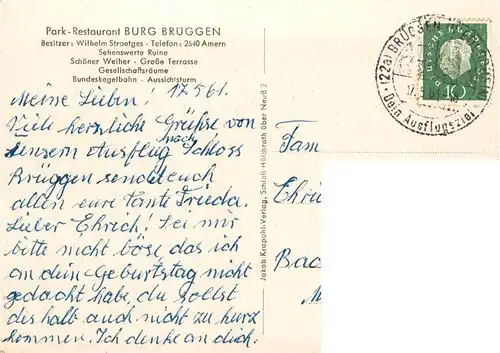 Park-Restaurant BURG BRÜGGEN
Besitzer: Wilhelm Straetges - Telefon: 2640 Amern
Sehenswerte Ruine
Schöner Weiher - Große Terrasse
Gesellschaftsräume
Bundeskegelbahn - Aussichtsturm
Meine Lieben! 17.5.61.
Viele herzlich Grühse von
unsern Ausflug nach Schloss
Brüggen sendet euch
allen eure Tante Frieda.
Lieber Ehrich! Sei mir
bitte nicht böse das ich
an dein Geburtstag nicht
gedacht habe, du sollst
des halb auch nicht zu kurz
kommen. Ich denke an dich.
Jakob Krapohl-Verlag, Schloß Hülchrath über Neuß 2
(22a) BRÜGGEN
Dein Ausflugsziel
10
Fam
Ehrü
Bac